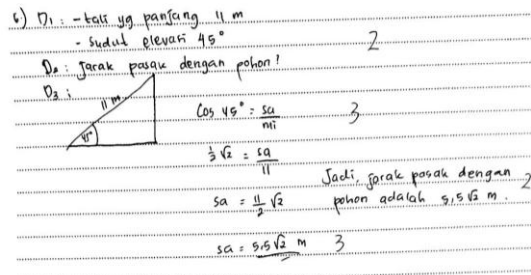 6.) D1 : - tali yg panjang 11 m
- sudut elevasi 45°
2
D2 : Jarak pasak dengan pohon !
D3 :
11 m
45°
Cos 45° = sa/mi
3
½√2 = sa/11
sa = 11/2 √2
Jadi, jarak pasak dengan
pohon adalah 5,5√2 m.
2
sa = 5,5√2 m
3